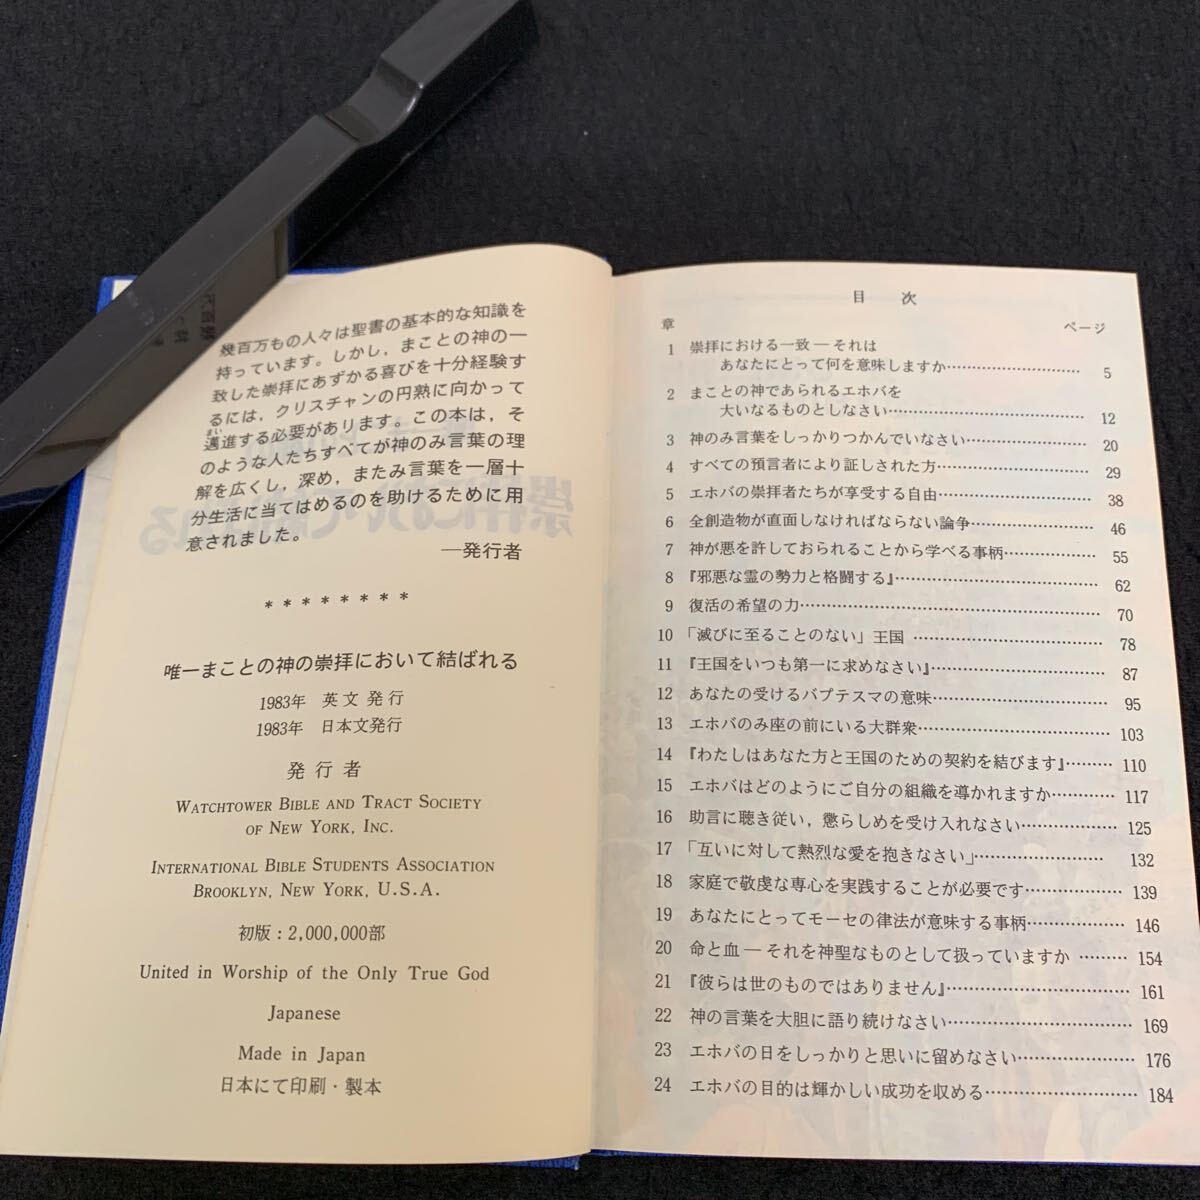 幾百万もの人々は聖書の基本的な知識を
持っています。しかし，まことの神の一
致した崇拝にあずかる喜びを十分経験す
るには，クリスチャンの円熟に向かって
邁進する必要があります。この本は，そ
のような人たちすべてが神のみ言葉の理
解を広くし，深め，またみ言葉を一層十
分生活に当てはめるのを助けるために用
意されました。
―発行者
＊＊＊＊＊＊＊＊
唯一まことの神の崇拝において結ばれる
1983年　英文発行
1983年　日本文発行
発行者
WATCHTOWER BIBLE AND TRACT SOCIETY
OF NEW YORK, INC.
INTERNATIONAL BIBLE STUDENTS ASSOCIATION
BROOKLYN, NEW YORK, U.S.A.
初版：2,000,000部
United in Worship of the Only True God
Japanese
Made in Japan
日本にて印刷・製本
目　次
章　ページ
1 崇拝における一致 ― それは
あなたにとって何を意味しますか………………………… 5
2 まことの神であられるエホバを
大いなるものとしなさい………………………………… 12
3 神のみ言葉をしっかりつかんでいなさい…………………… 20
4 すべての預言者により証しされた方………………………… 29
5 エホバの崇拝者たちが享受する自由………………………… 38
6 全創造物が直面しなければならない論争…………………… 46
7 神が悪を許しておられることから学べる事柄……………… 55
8 『邪悪な霊の勢力と格闘する』……………………………… 62
9 復活の希望の力………………………………………………… 70
10 「滅びに至ることのない」王国 …………………………… 78
11 『王国をいつも第一に求めなさい』………………………… 87
12 あなたの受けるバプテスマの意味………………………… 95
13 エホバのみ座の前にいる大群衆…………………………… 103
14 『わたしはあなた方と王国のための契約を結びます』……… 110
15 エホバはどのようにご自分の組織を導かれますか………… 117
16 助言に聴き従い，懲らしめを受け入れなさい……………… 125
17 「互いに対して熱烈な愛を抱きなさい」…………………… 132
18 家庭で敬虔な専心を実践することが必要です……………… 139
19 あなたにとってモーセの律法が意味する事柄……………… 146
20 命と血 ― それを神聖なものとして扱っていますか ……… 154
21 『彼らは世のものではありません』………………………… 161
22 神の言葉を大胆に語り続けなさい………………………… 169
23 エホバの日をしっかりと思いに留めなさい……………… 176
24 エホバの目的は輝かしい成功を収める…………………… 184